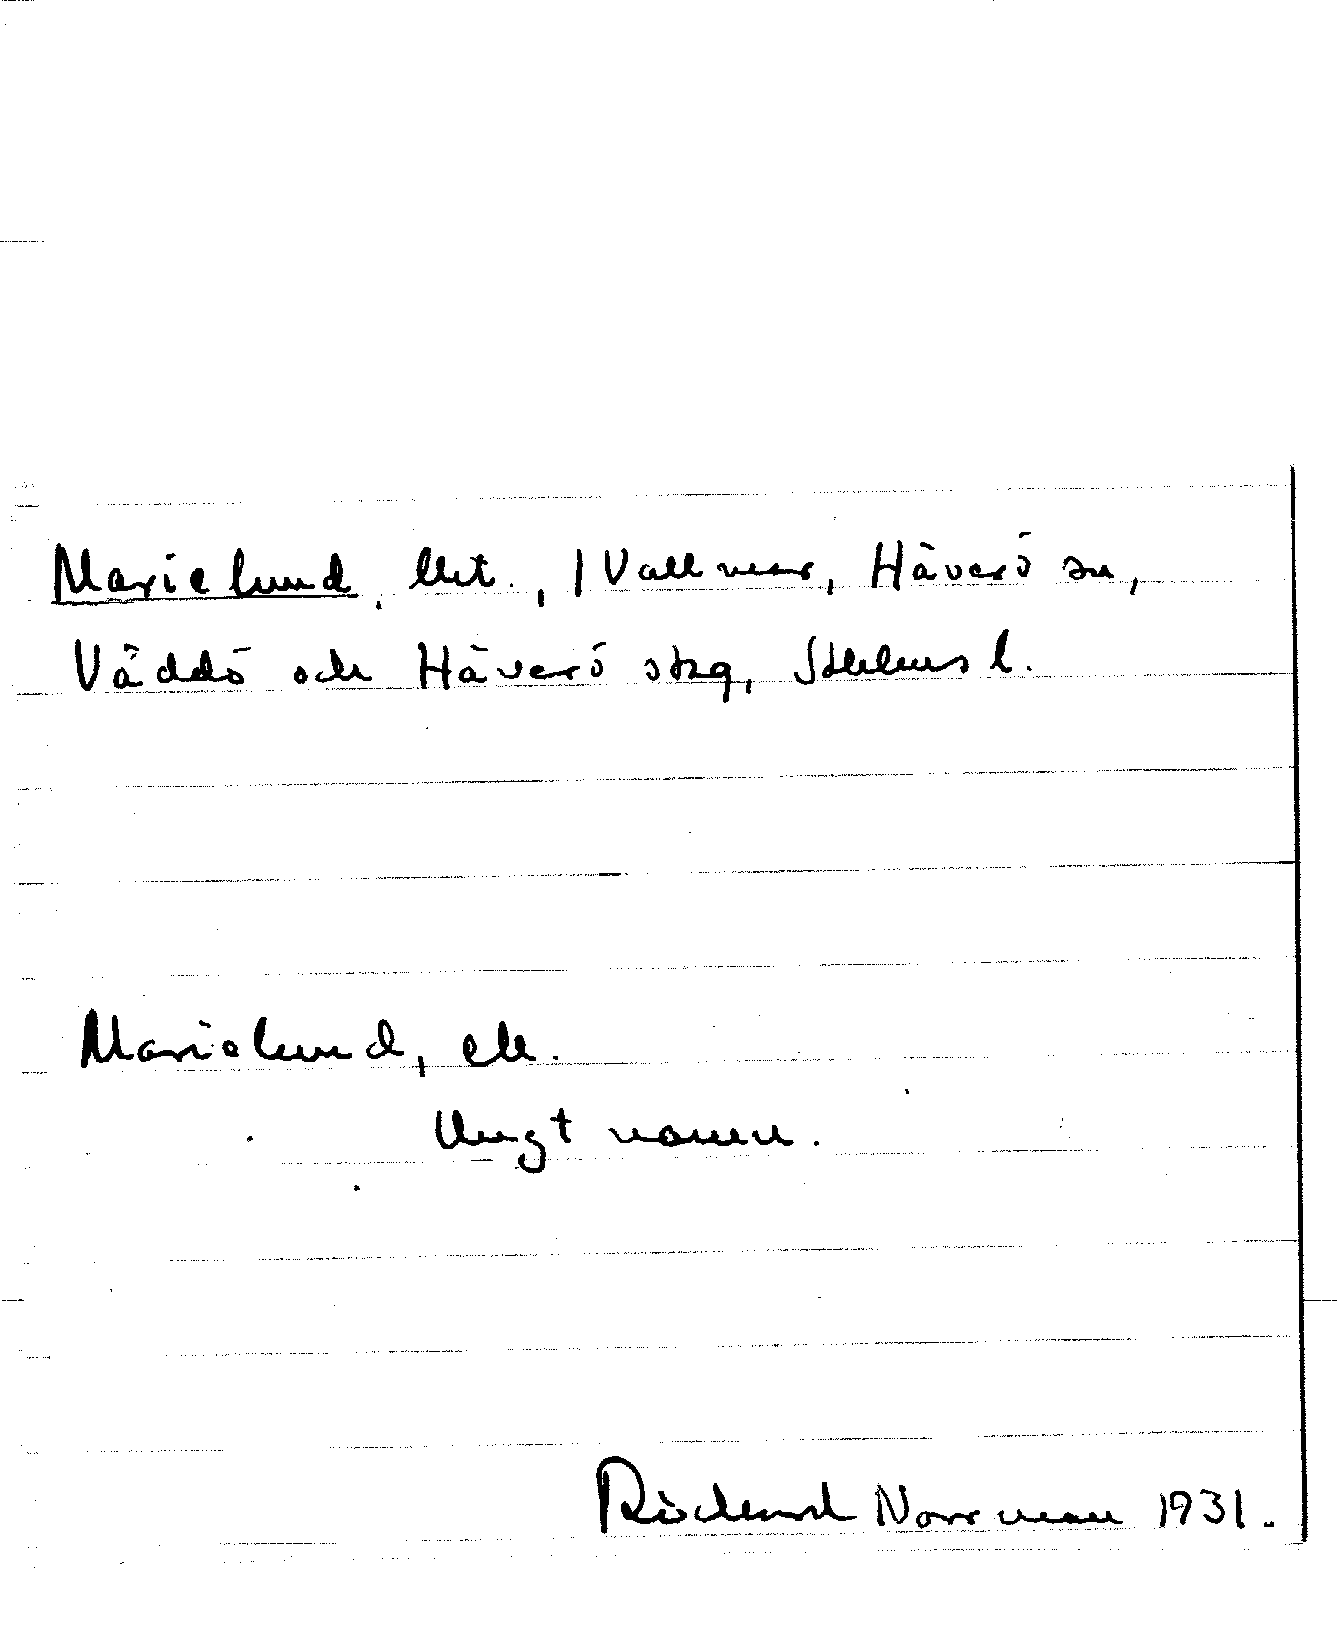 Marielund, lht., / Vallmar, Häverö sn,
Väddö och Häverö skg, Sthlms l.
Marielund, ell.
Ungt namn.
Rickard Norrman 1931.